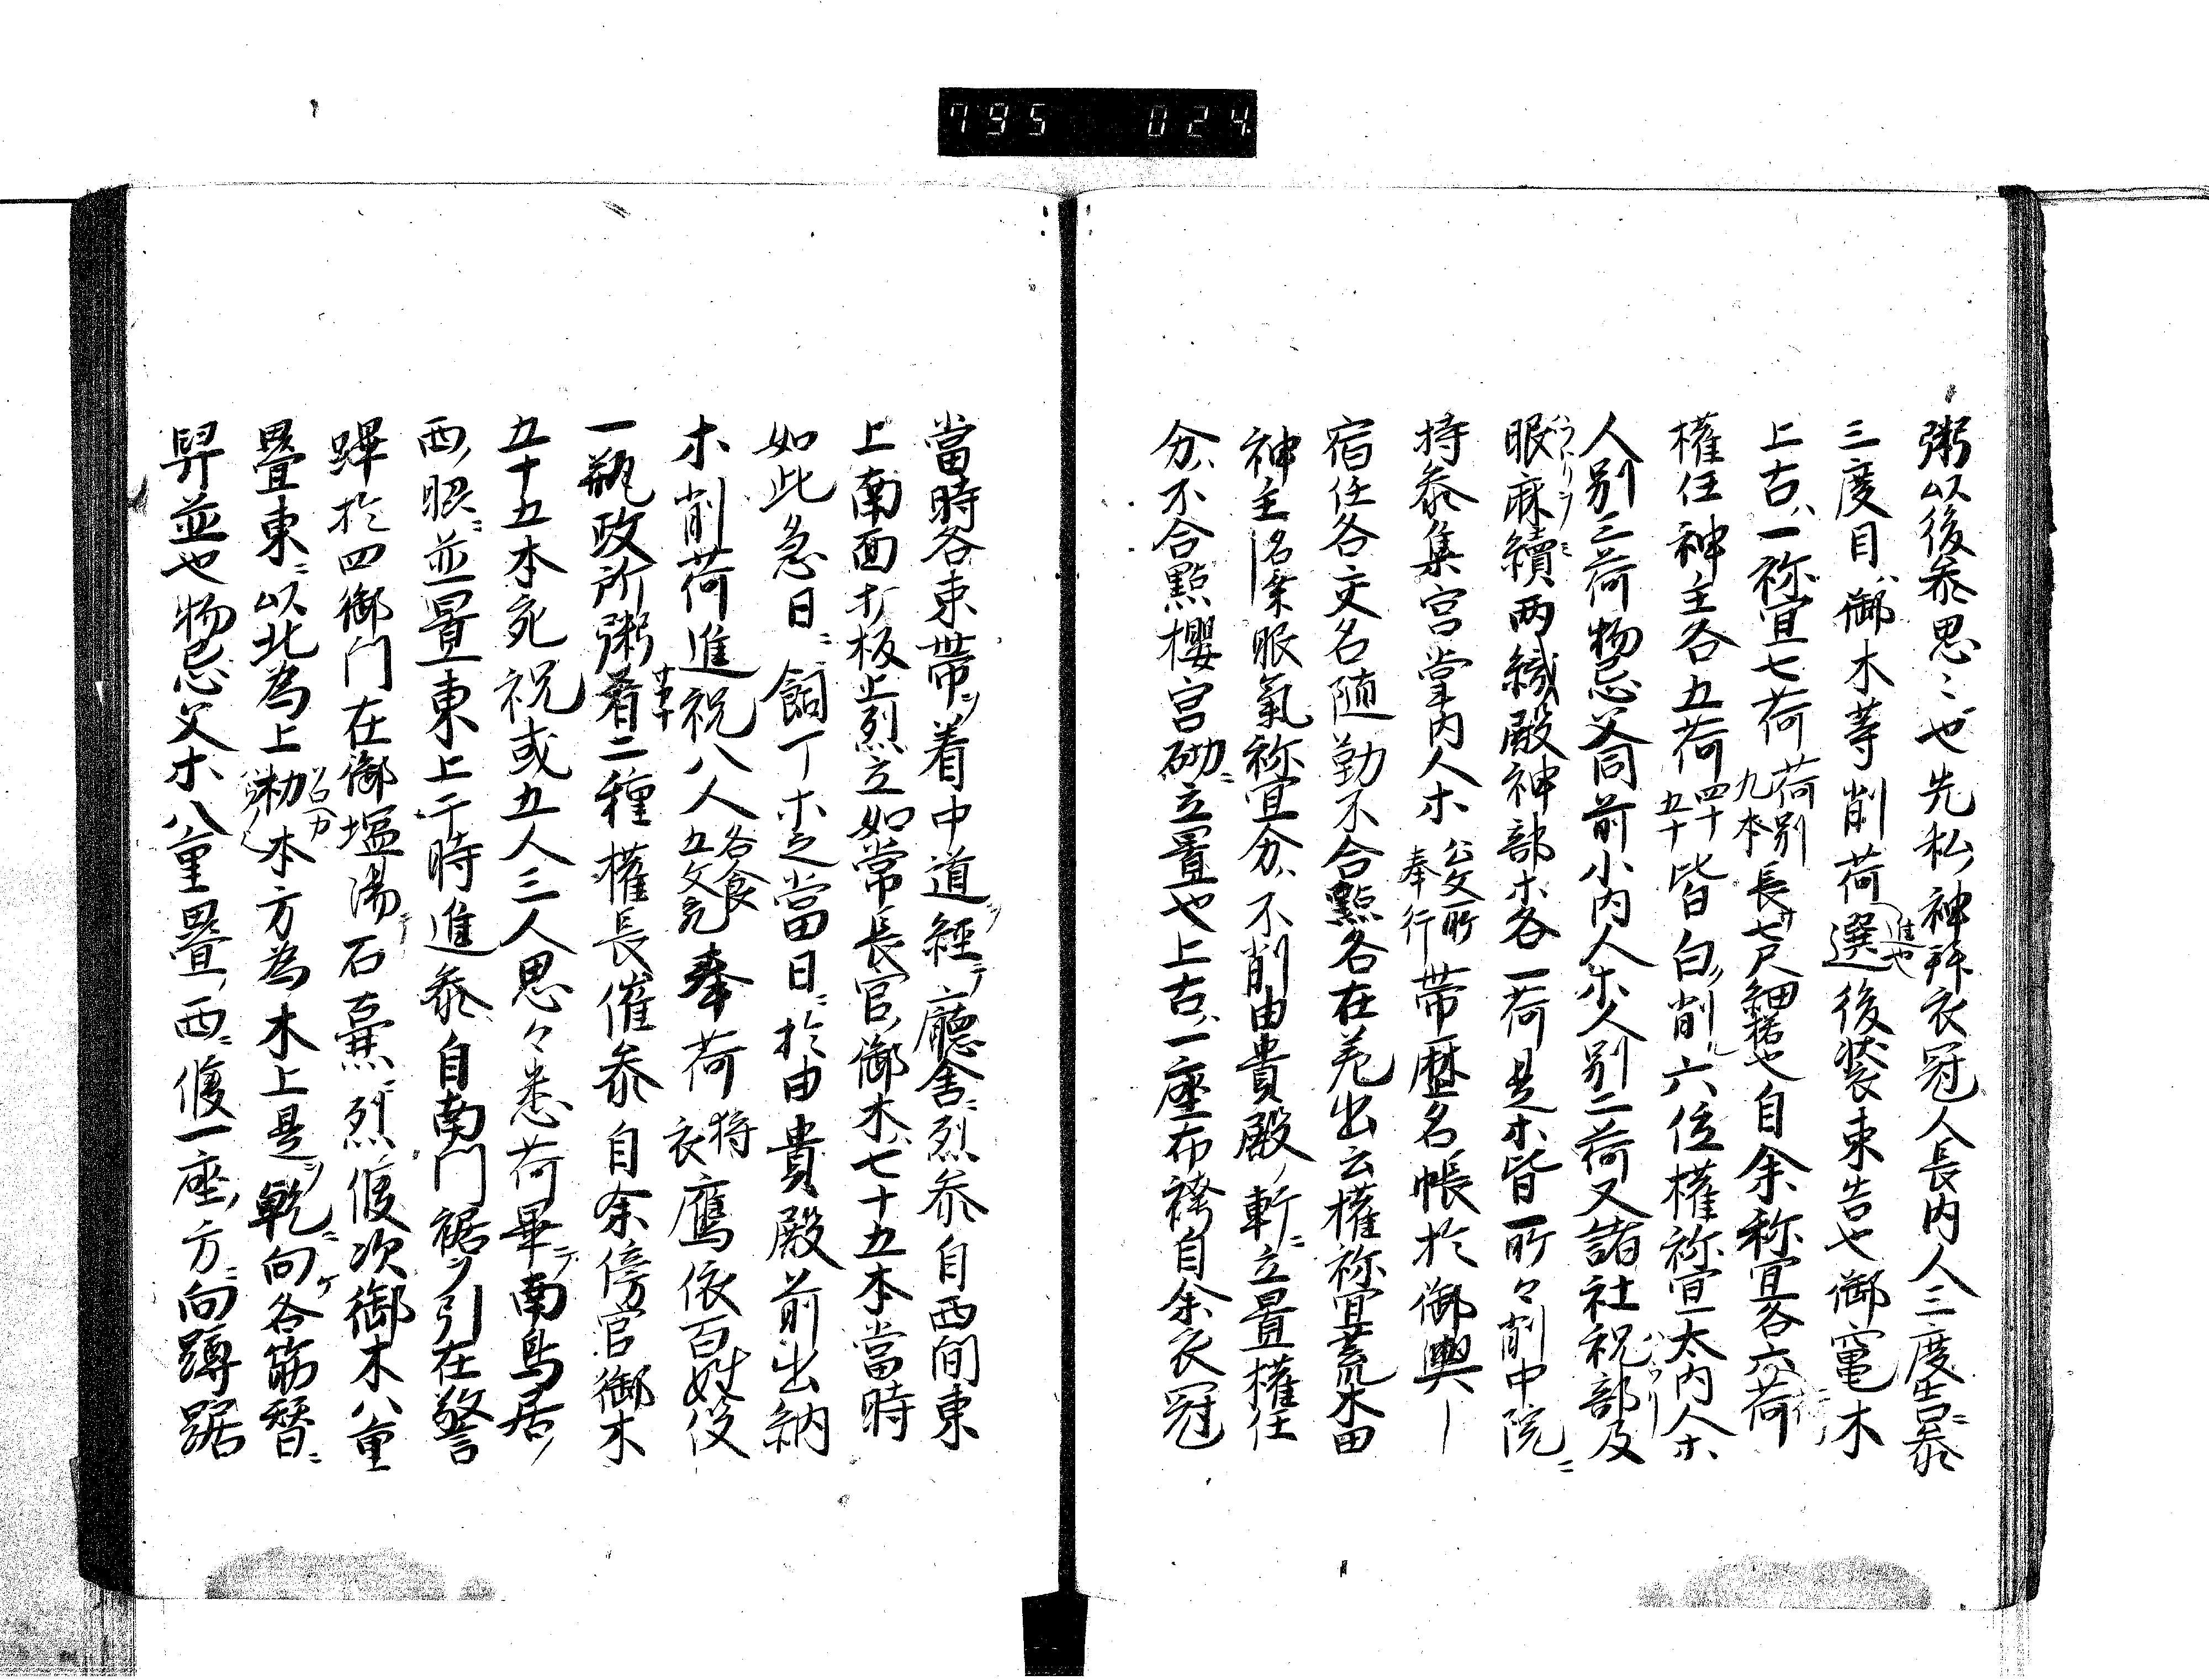 795 024
粥以後参思〻也先私神拜衣冠人長内人三度告ニ参
三度目ハ御木等削荷選進也後装束告也御竃木
上古ハ一祢宜七荷荷別九本長サ七尺細榰也自余祢宜各六荷
權任神主各五荷四十五十皆白ク削ル六位權祢宜太内人ホ
人別三荷物忌父同前小内人ホ人別二荷又諸社祝部及
服麻績兩織殿神部ホ各一荷是ホ皆所々削中院ニ
持参集宮掌内人ホ公文所奉行帶歴名帳於御輿
宿任各交名随勤不合點各在差出云權祢宜荒木田
神主名条服氣祢宜分ハ不削由貴殿ノ軒ニ立置權任
分ハ不合點櫻宮砌ニ立置也上古ハ一座布袴自余衣冠
當時各束帶ヲ着中道ヲ經テ廳舍ニ烈参自西間東
上南面打板上烈立如常長官ノ御木ハ七十五本當時
如此急日ニ飼丁ホ之當日ニ於由貴殿前出納
ホ削荷進祝八人各食五文充奉荷將衣鷹依百姓役
一瓶政所粥肴二種權長催参自余傍官御木
五十五本充祝或五人三人思々悉荷畢テ南鳥居ノ
西ノ眼ニ並置東上于時進参自南門裾ヲ引在警
蹕於四御門在御塩湯テ石𡋽ニ烈候次御木八重
疊東ニ以北為上初本方為木上是ヲ乾ニ向ケ各筋替ニ
舁並也物忌父ホ八重疊ノ西ニ候一座ノ方ニ向蹲踞